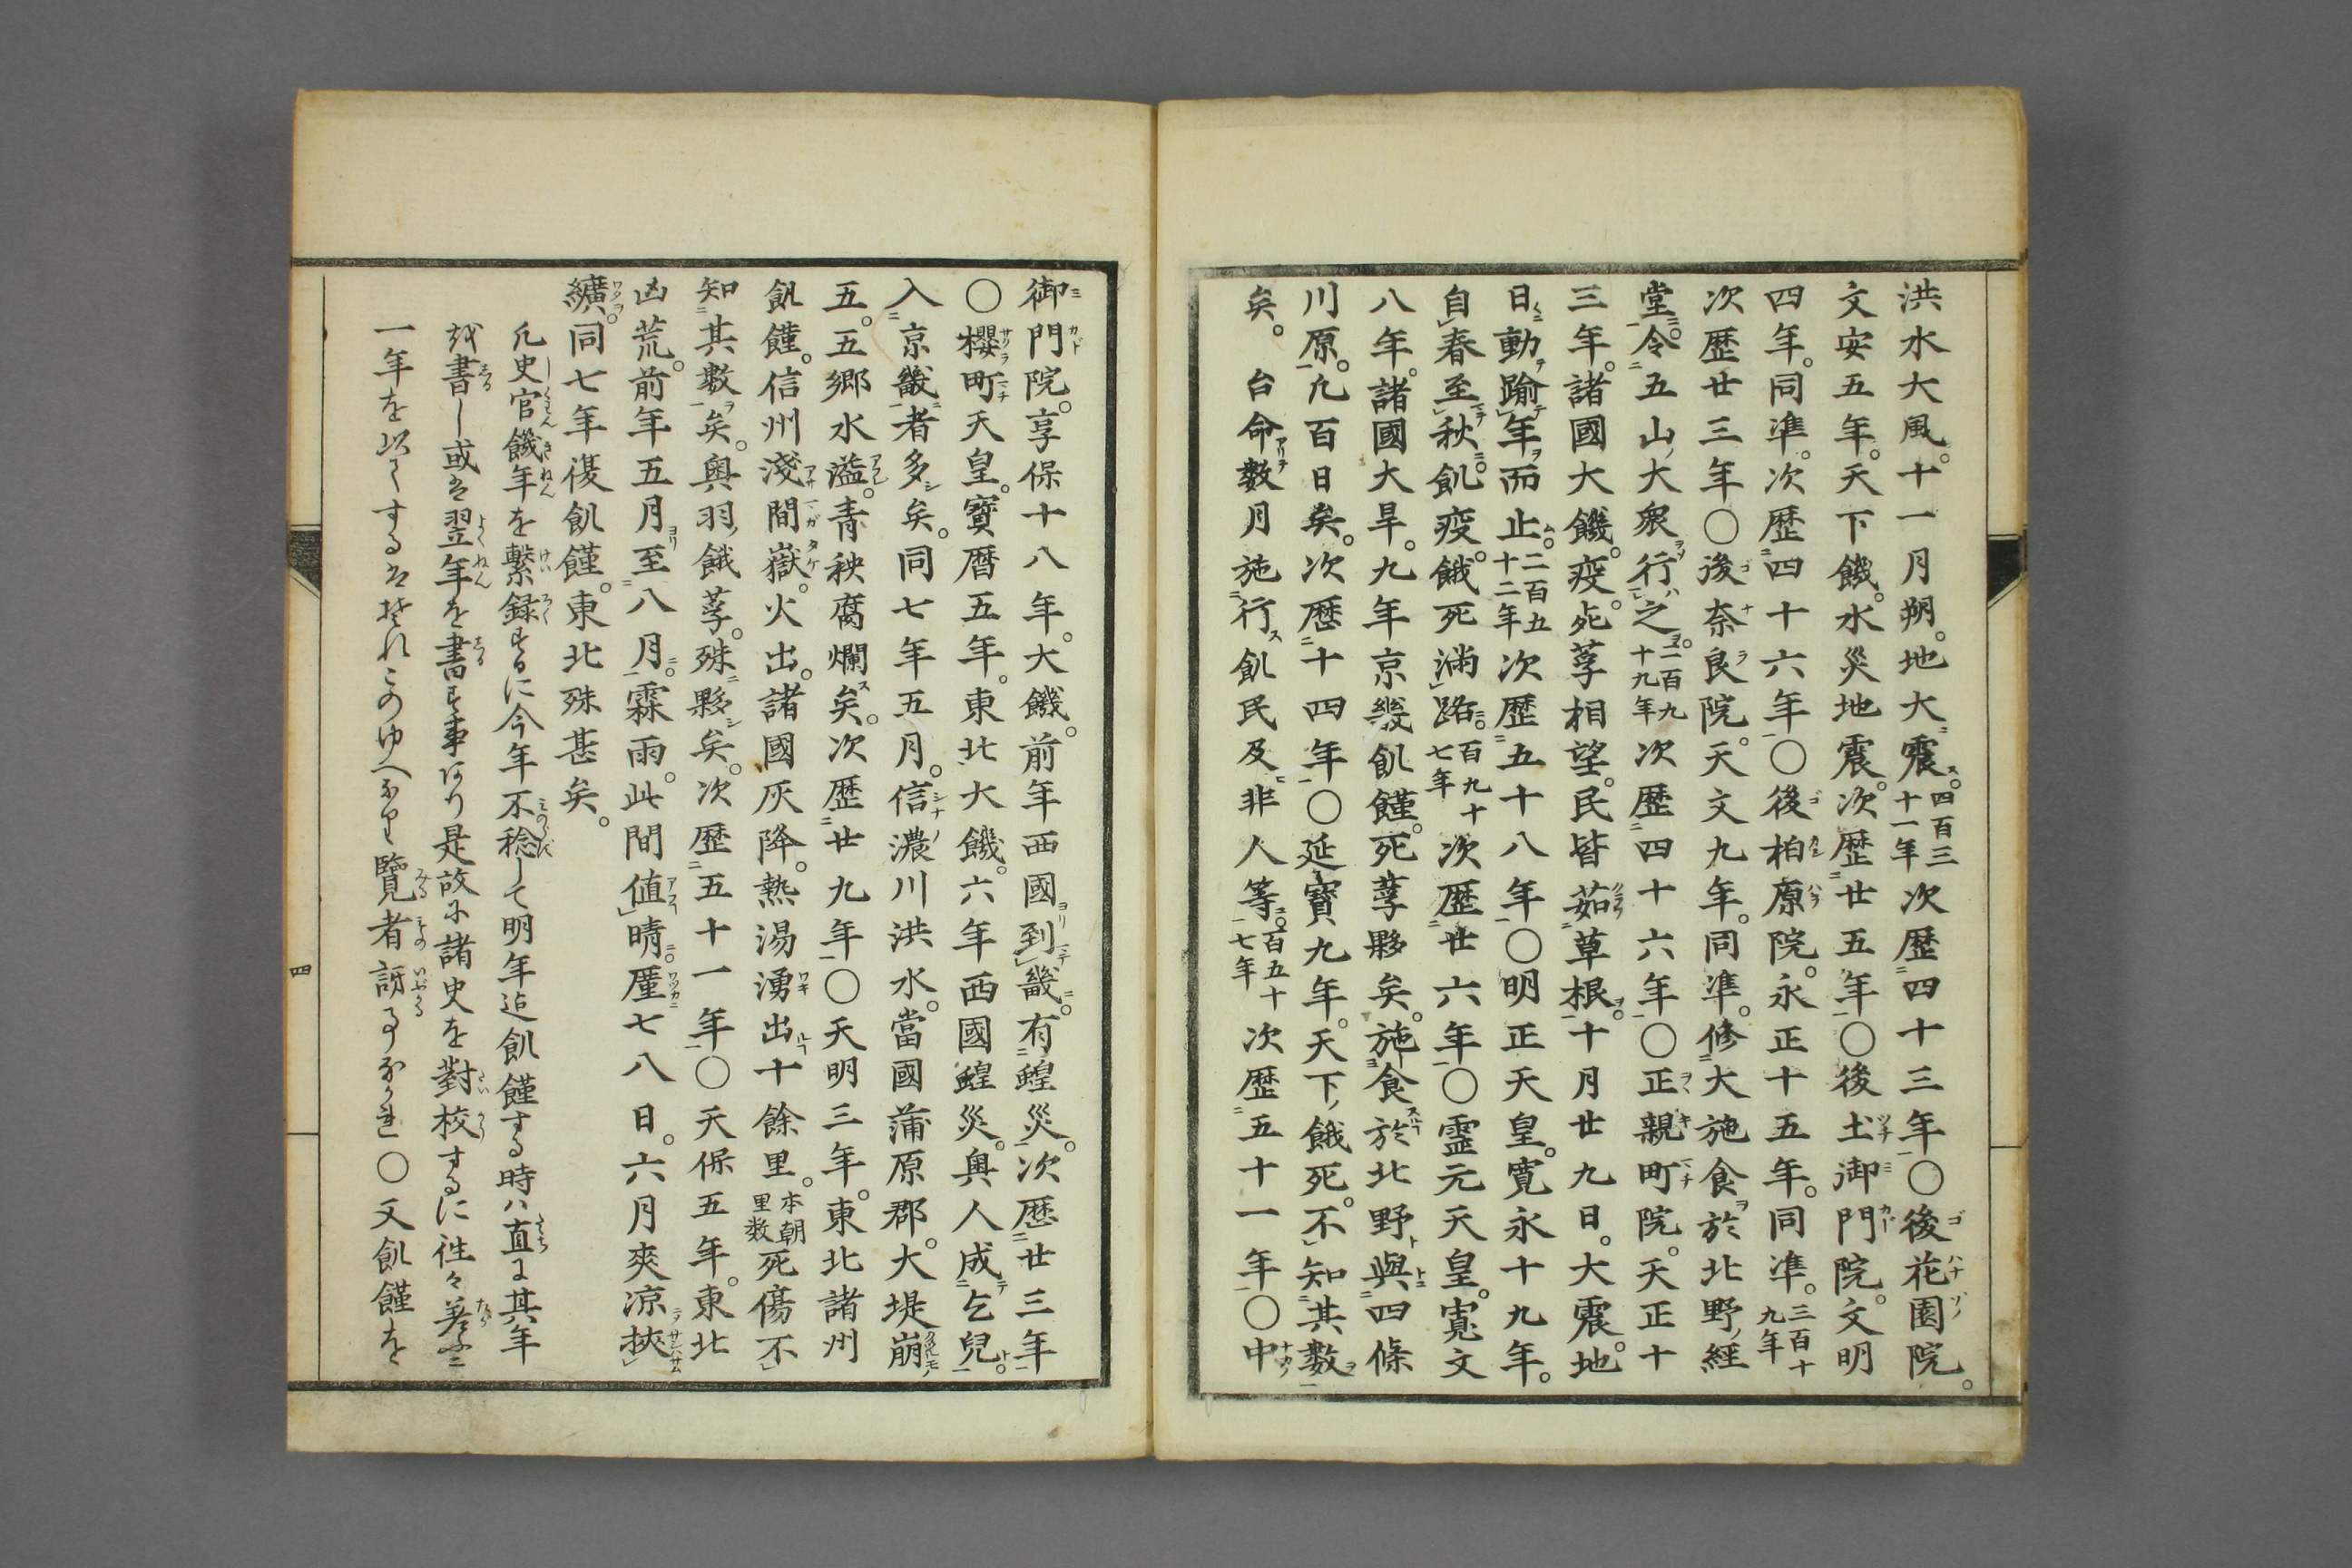 洪水大風。十一月朔。地大震。四百三十一年次歴四十三年〇後花園院。
文安五年。天下饑。水災地震。次歴廿五年〇後土御門院。文明
四年。同準。次歴四十六年〇後柏原院。永正十五年。同準。三百十九年
次歴廿三年〇後奈良院。天文九年。同準。修大施食於北野經
堂。令五山大衆行之。二百九十九年次歴四十六年〇正親町院。天正十
三年。諸國大饑。疫。死莩相望。民皆茹草根。十月廿九日。大震。地
日動踰年而止。二百五十二年次歴五十八年〇明正天皇。寛永十九年。
自春至秋飢。疫。餓死満路。百九十七年次歴廿六年〇霊元天皇。寛文
八年。諸國大旱。九年京畿飢饉。死莩夥矣。施食於北野與四條
川原。九百日矣。次歴十四年〇延寶九年。天下餓死。不知其數
矣。台命數月施行飢民及非人等。百五十七年次歴五十一年〇中
御門院。享保十八年。大饑。前年西國到畿。有蝗災。次歴廿三年
〇櫻町天皇。寶暦五年。東北大饑。六年西國蝗災。奥人成乞兒
入京畿者多矣。同七年五月。信濃川洪水。當國蒲原郡。大堤崩
五。五郷水溢。青秧腐爛矣。次歴廿九年〇天明三年。東北諸州
飢饉。信州淺間嶽。火出。諸國灰降。熱湯湧出十餘里。本朝里数死傷不
知其數矣。奥羽餓莩。殊夥矣。次歴五十一年〇天保五年。東北
凶荒。前年五月至八月。霖雨。此間値晴。厪七八日。六月爽凉挾
纊。同七年復飢饉。東北殊甚矣。
凡史官饑年を繋録するに今年不稔して明年迄飢饉する時ハ直に其年
を書し或は翌年を書す事あり是故に諸史を對校するに往々差ふニ
一年を以てするはそれこのゆへなり覽者訝る事なかれ〇又飢饉を
四